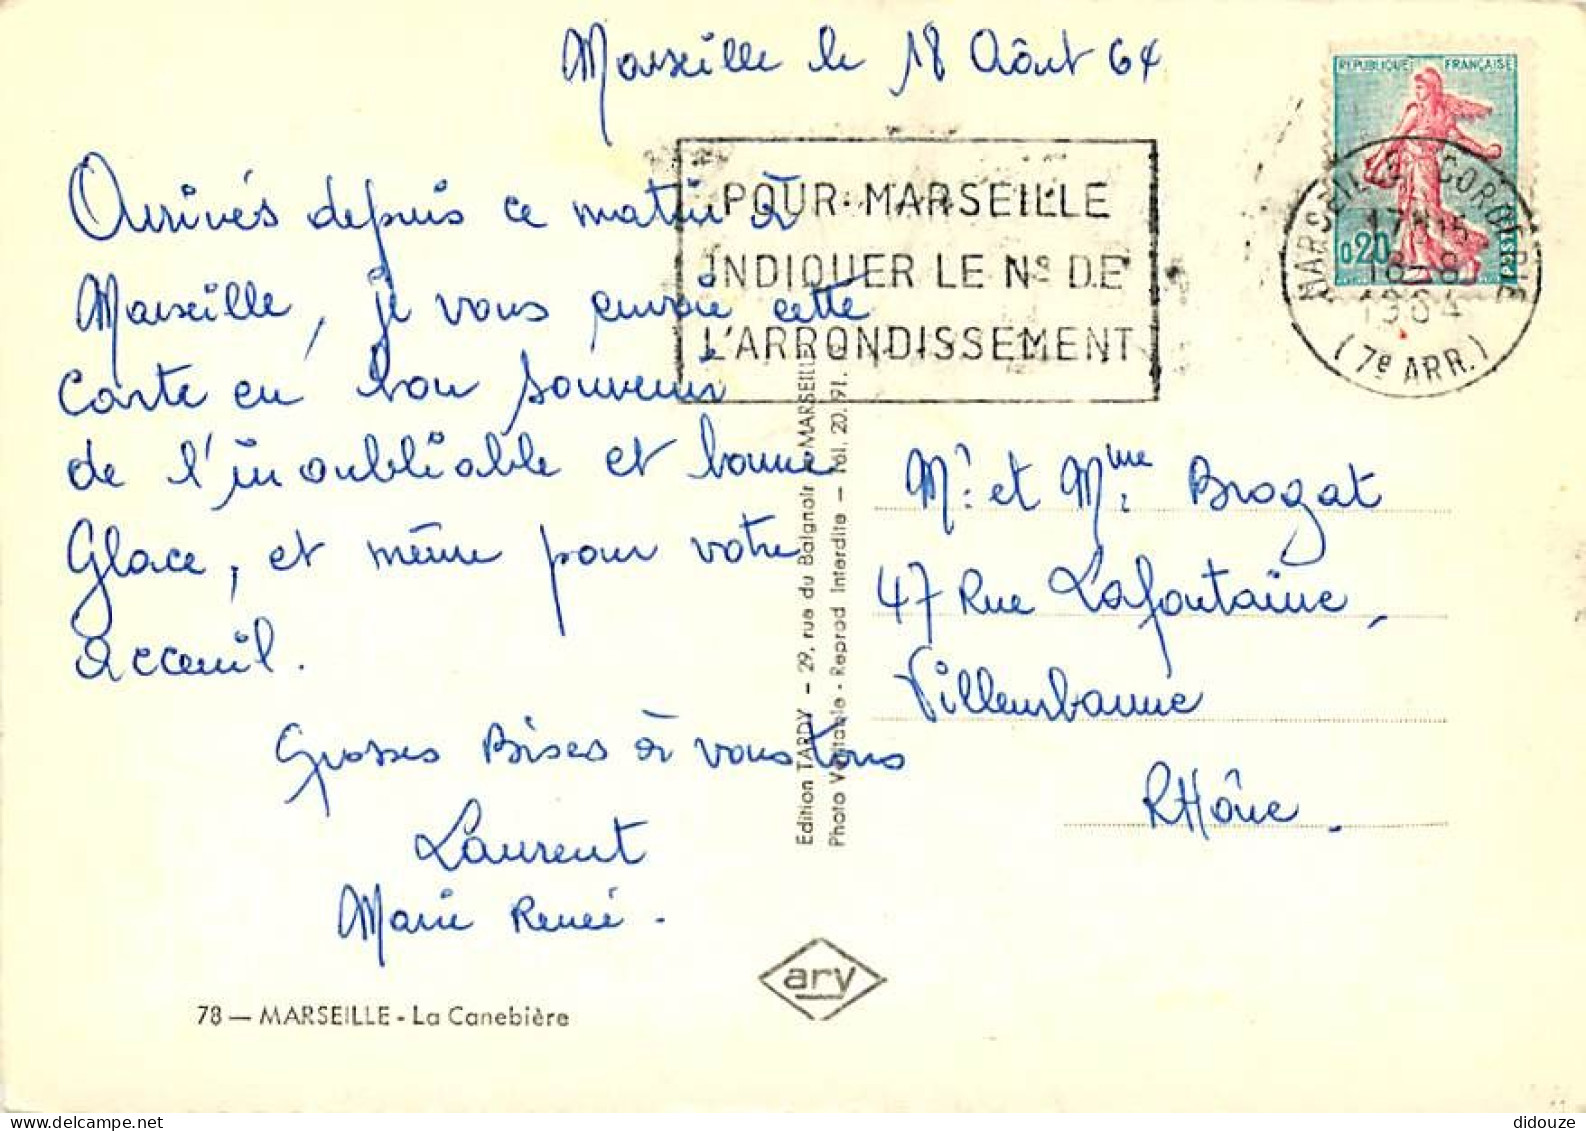 Marseille le 18 Aôut 64
REPUBLIQUE FRANÇAISE
0,20
POSTES
MARSEILLE CORDERIE
17H15
18-8
1964
(7e ARR.)
POUR MARSEILLE
INDIQUER LE No DE
L'ARRONDISSEMENT
Arrivés depuis ce matin à
Marseille, je vous envoie cette
Carte en bon souvenir
de l'inoubliable et bonne
Glace, et même pour votre
acceuil.
Grosses Bises à vous tous
Laurent
Marie Renée.
Edition TARDY - 29, rue du Baignoir - MARSEILLE
Photo Véritable - Reprod Interdite - Tél. 20.91.
Mr. et Mme Brogat
47 Rue Lafontaine,
Villeurbanne
RHône.
ary
78 — MARSEILLE - La Canebière
didouze